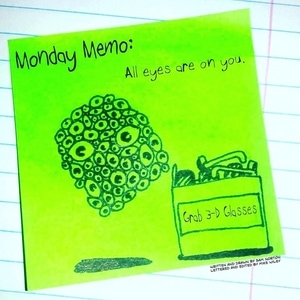 Monday Memo:
All eyes are on you.
Grab 3-D Glasses
WRITTEN AND DRAWN BY SAM NORTON
LETTERED AND EDITED BY MIKE WALBY